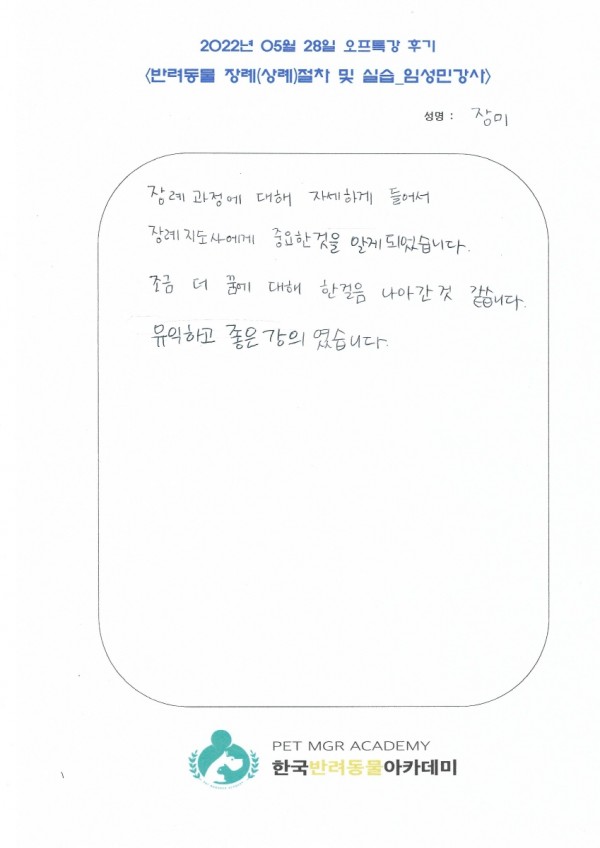 2022년 05월 28일 오프특강 후기
<반려동물 장례(상례)절차 및 실습_임성민강사>
성명 : 장미
장례 과정에 대해 자세하게 들어서
장례지도사에게 중요한것을 알게되었습니다.
조금 더 꿈에 대해 한걸음 나아간것 같습니다.
유익하고 좋은강의 였습니다.
PET MGR ACADEMY
한국반려동물아카데미